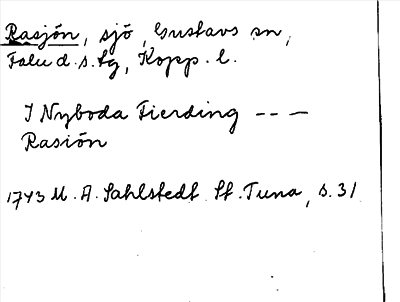 Rasjön, sjö, Gustavs sn,
Falu d.s. fg, Kopp. l.
I Nyboda Fierding -- —
Rasiön
1743 M. A. Sahlstedt St. Tuna, s. 31